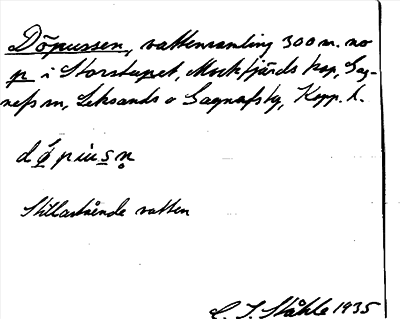 Döpussen, vattensamling 300 m. no
p i Storstupet, Mockfjärds kap, Gag-
nefs sn, Leksands o Gagnefs tg, Kopp. l.
d ǿ p iu s n̥
Stillastående vatten
C. I. Ståhle 1935